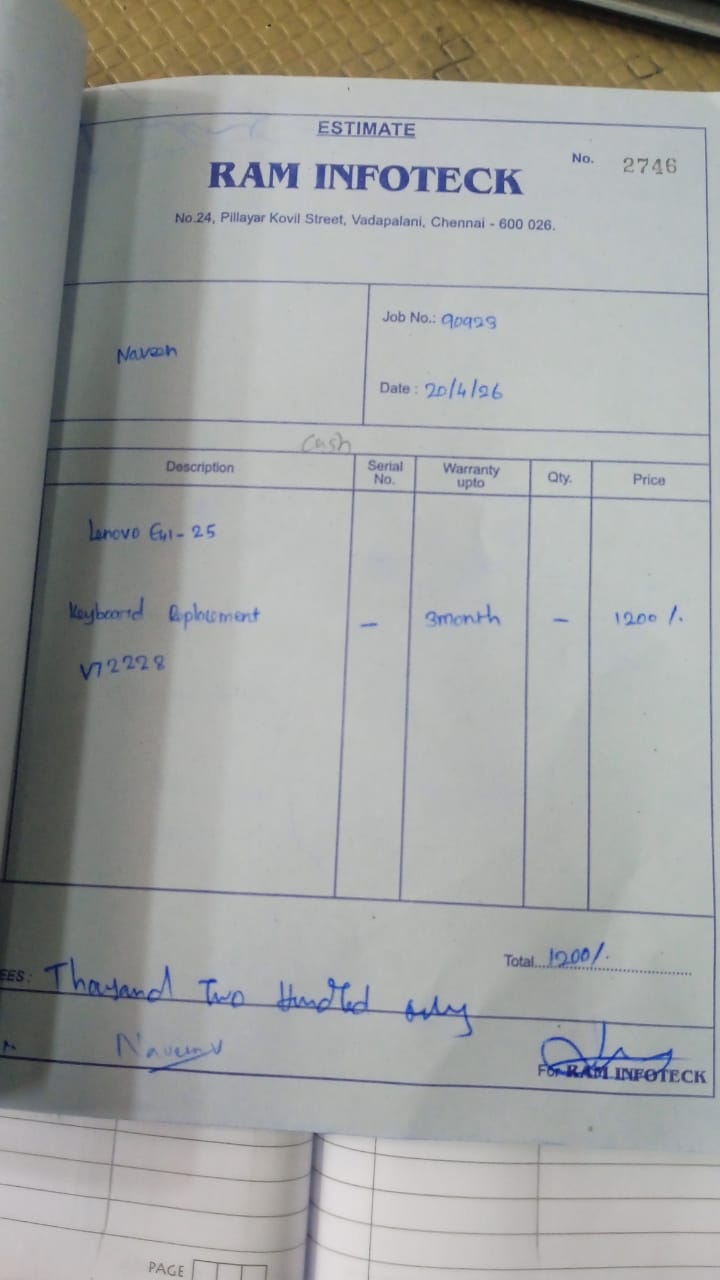 ESTIMATE
No. 2746
RAM INFOTECK
No.24, Pillayar Kovil Street, Vadapalani, Chennai - 600 026.
Job No.: 90923
Naveen
Date : 20/4/26
Cash
Description Serial No. Warranty upto Qty. Price
Lenovo E41-25
Keyboard Replacement - 3month - 1200/.
V72228
Total 1200/.
EES: Thousand Two Hundred only
Naveen
For RAM INFOTECK
PAGE